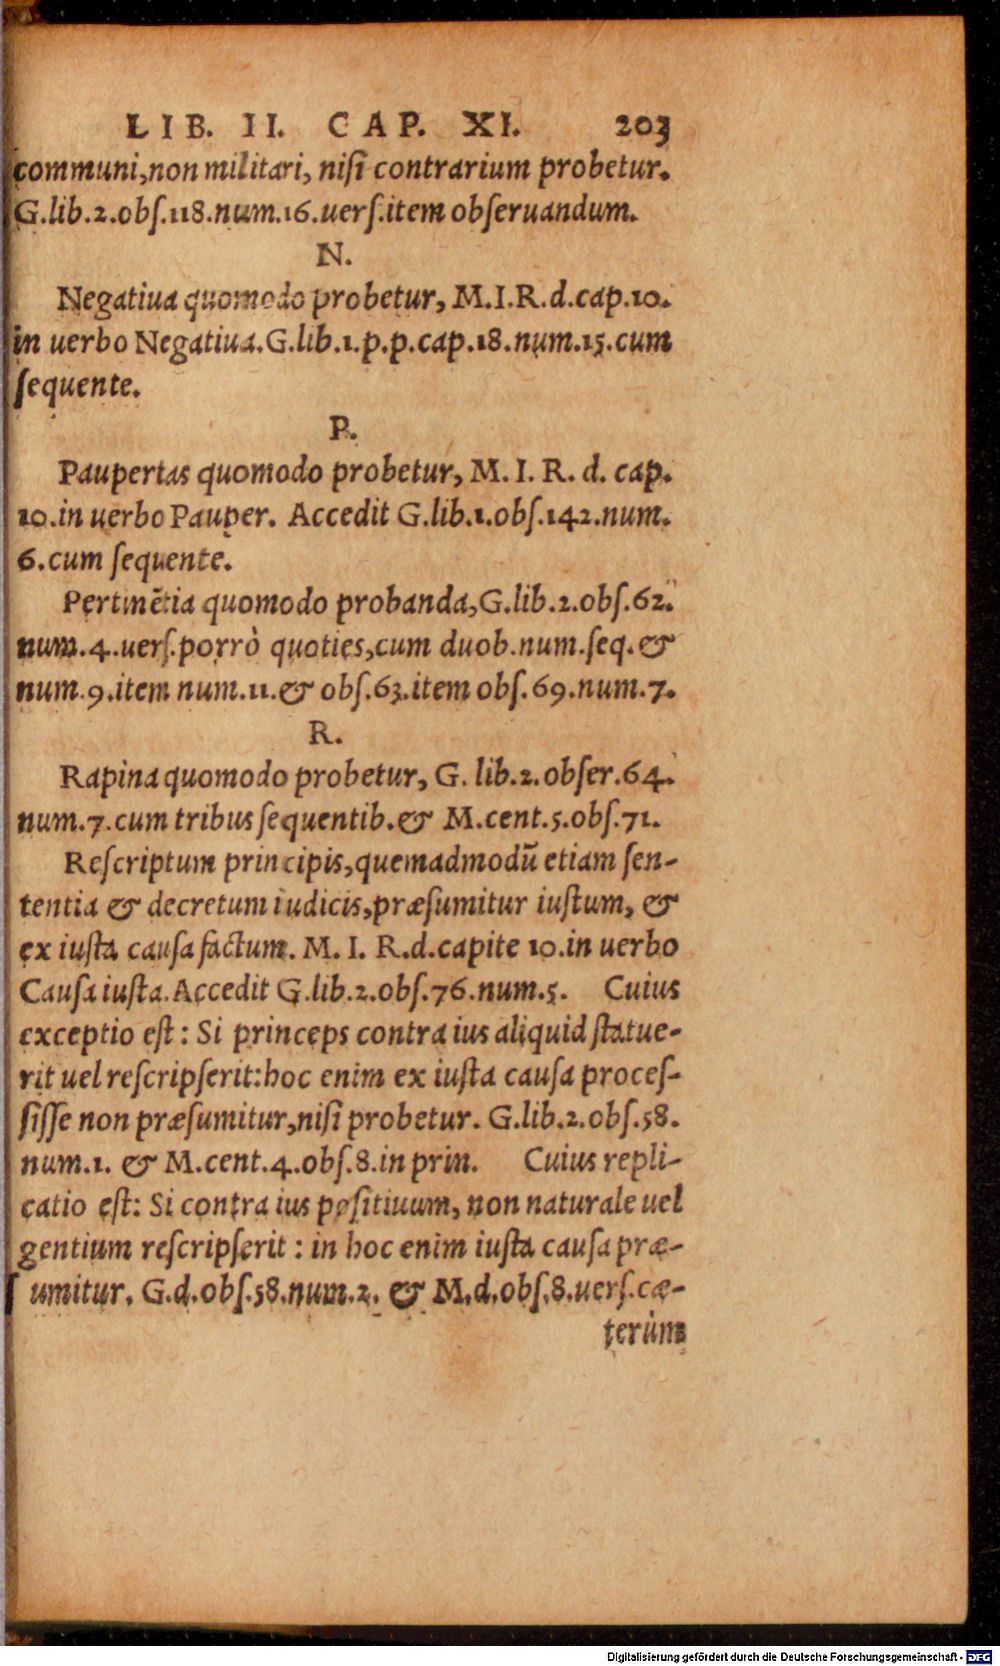 LIB. II. CAP. XI. 203
communi, non militari, niſi contrarium probetur.
G.lib.2.obſ.118.num.16.uerſ.item obſeruandum.
N.
Negatiua quomodo probetur, M.I.R.d.cap.10.
in uerbo Negatiua.G.lib.1.p.p.cap.18.num.15.cum
ſequente.
P.
Paupertas quomodo probetur, M. I. R. d. cap.
10.in uerbo Pauper. Accedit G.lib.1.obſ.142.num.
6.cum ſequente.
Pertinẽtia quomodo probanda,G.lib.2.obſ.62.
num.4.uerſ.porrò quoties,cum duob.num.ſeq.&
num.9.item num.11.& obſ.63.item obſ.69.num.7.
R.
Rapina quomodo probetur, G. lib.2.obſer.64.
num.7.cum tribus ſequentib.& M.cent.5.obſ.71.
Reſcriptum principis,quemadmodũ etiam ſen-
tentia & decretum iudicis,præſumitur iuſtum, &
ex iuſta cauſa factum. M. I. R.d.capite 10.in uerbo
Cauſa iuſta.Accedit G.lib.2.obſ.76.num.5. Cuius
exceptio eſt: Si princeps contra ius aliquid ſtatue-
rit uel reſcripſerit:hoc enim ex iuſta cauſa proceſ-
ſiſſe non præſumitur,niſi probetur. G.lib.2.obſ.58.
num.1. & M.cent.4.obſ.8.in prin. Cuius repli-
catio eſt: Si contra ius poſitiuum, non naturale uel
gentium reſcripſerit : in hoc enim iuſta cauſa præ-
ſumitur. G.d.obſ.58.num.2. & M.d.obſ.8.uerſ.cæ-
terùm
Digitalisierung gefördert durch die Deutsche Forschungsgemeinschaft - DFG